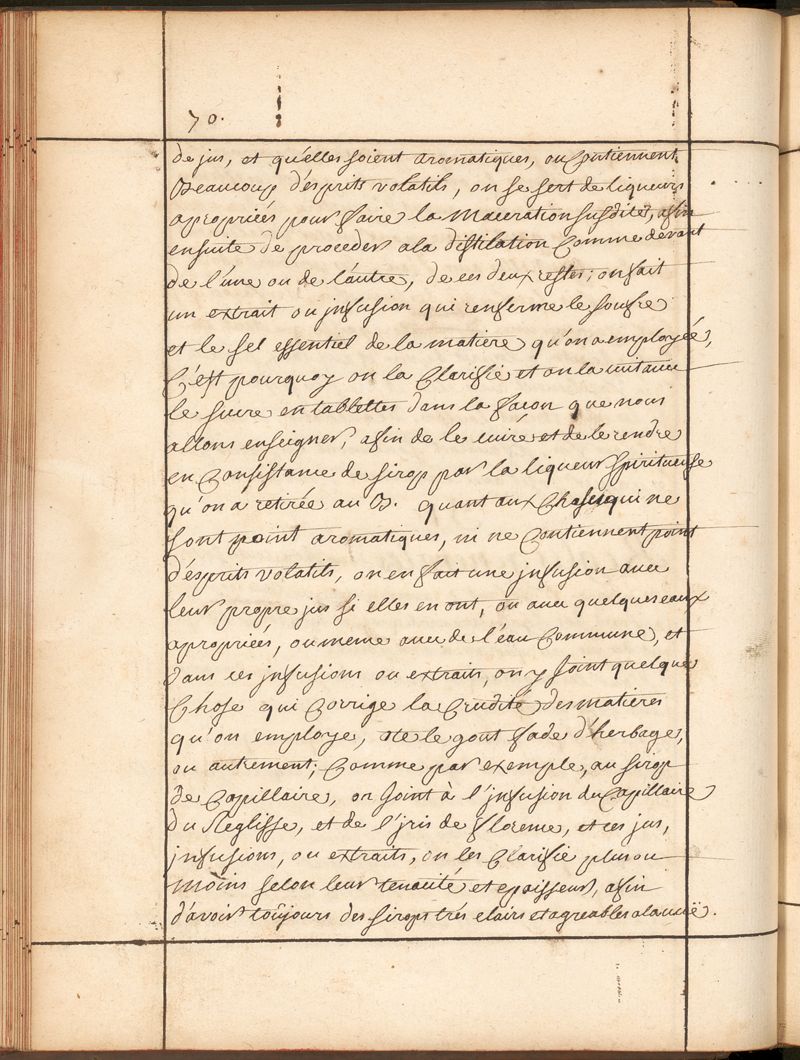 70.
de jus, et qu'elles soient aromatiques, ou Contiennent
Beaucoup d'esprits volatils, on se sert de liqueurs
apropriées pour faire la maceration susdite, afin
ensuite de proceder a la distilation Comme devant
de l'une ou de l'autre, de ces deux restes; on fait
un extrait ou jnfusion qui renferme le soufre
et le sel essentiel de la matiere qu'on a employée,
C'est pourquoy on la Clarifie et on la cuit avec
le sucre en tablettes dans la facon que nous
allons enseigner, afin de le cuire et de le rendre
en Consistance de sirop par la liqueur spiritueuse
qu'on a retirée au B. quant aux Choses qui ne
sont point aromatiques, ni ne Contiennent point
d'esprits volatils, on en fait une jnfusion avec
leur propre jus si elles en ont, ou avec quelques eaux
apropriées, ou meme avec de l'eau Commune, et
dans ces jnfusions ou extraits, on y Joint quelque
Chose qui Corrige la Crudité des matieres
qu'on employe, ote le gout fade d'herbage,
ou autrement; Comme par exemple, au sirop
de Capillaire, on Joint à l'jnfusion du Capillaire
du Reglisse, et de l'jris de florence, et ces jus,
jnfusions, ou extraits, on les Clarifie plus ou
moins selon leur tenacité et epaisseur, afin
d'avoir toûjours des sirops trés clairs et agreables a la vuë.